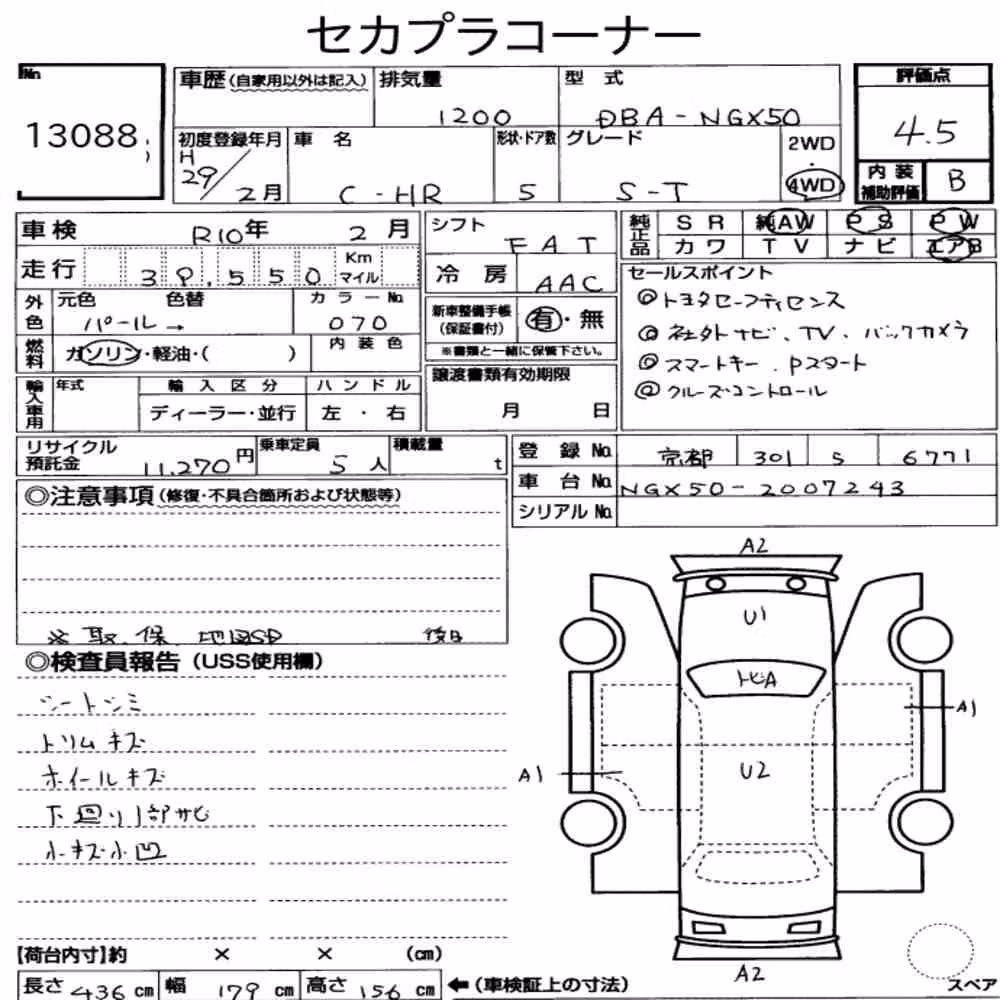 セカプラコーナー
No. 13088
車歴 (自家用以外は記入) 排気量 1200 型式 DBA-NGX50
評価点 4.5
内装補助評価 B
初度登録年月 H 29/2月 車名 C-HR 形状・ドア数 5 グレード S-T 2WD・4WD
車検 R10年 2月
走行 39,550 Km マイル
シフト FAT
冷房 AAC
純正品 SR 純AW PS PW
カワ TV ナビ エアB
外色 元色 パール→ 色替 カラーNo. 070
燃料 ガソリン・軽油・( ) 内装色
新車整備手帳(保証書付) 有・無
※書類と一緒に保管下さい。
セールスポイント
◎トヨタセーフティセンス
◎社外ナビ、TV、バックカメラ
◎スマートキー、Pスタート
◎クルーズコントロール
輸入車用 年式 輸入区分 ディーラー・並行 ハンドル 左・右
譲渡書類有効期限 月 日
リサイクル預託金 11,270円 乗車定員 5人 積載量 t
登録No. 京都 301 S 6771
車台No. NGX50-2007243
シリアルNo.
◎注意事項(修復・不具合箇所および状態等)
※取、保、地図SD 後日
◎検査員報告(USS使用欄)
シートシミ
トリムキズ
ホイールキズ
下廻り1部サビ
小キズ小凹
A2
U1
トビA
A1
A1
U2
A2
スペア
【荷台内寸】約 × × (cm)
長さ 436 cm 幅 179 cm 高さ 156 cm ←(車検証上の寸法)